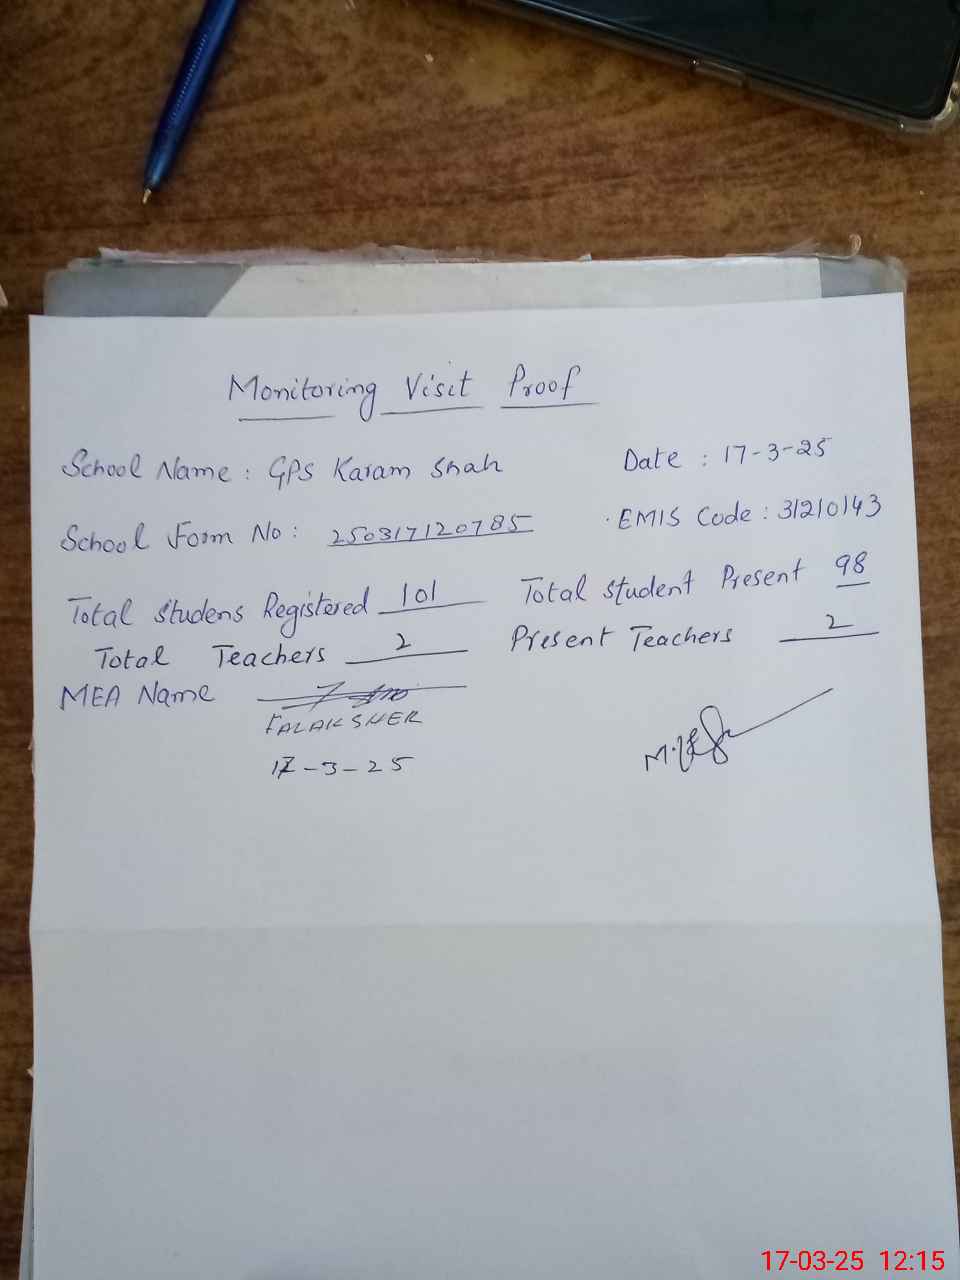 Monitoring Visit Proof
School Name : GPS Karam Shah Date : 17-3-25
School Form No : 250317120785 EMIS Code : 31210143
Total Studens Registered 101 Total Student Present 98
Total Teachers 2 Present Teachers 2
MEA Name
FALAK SHER
17-3-25
17-03-25 12:15